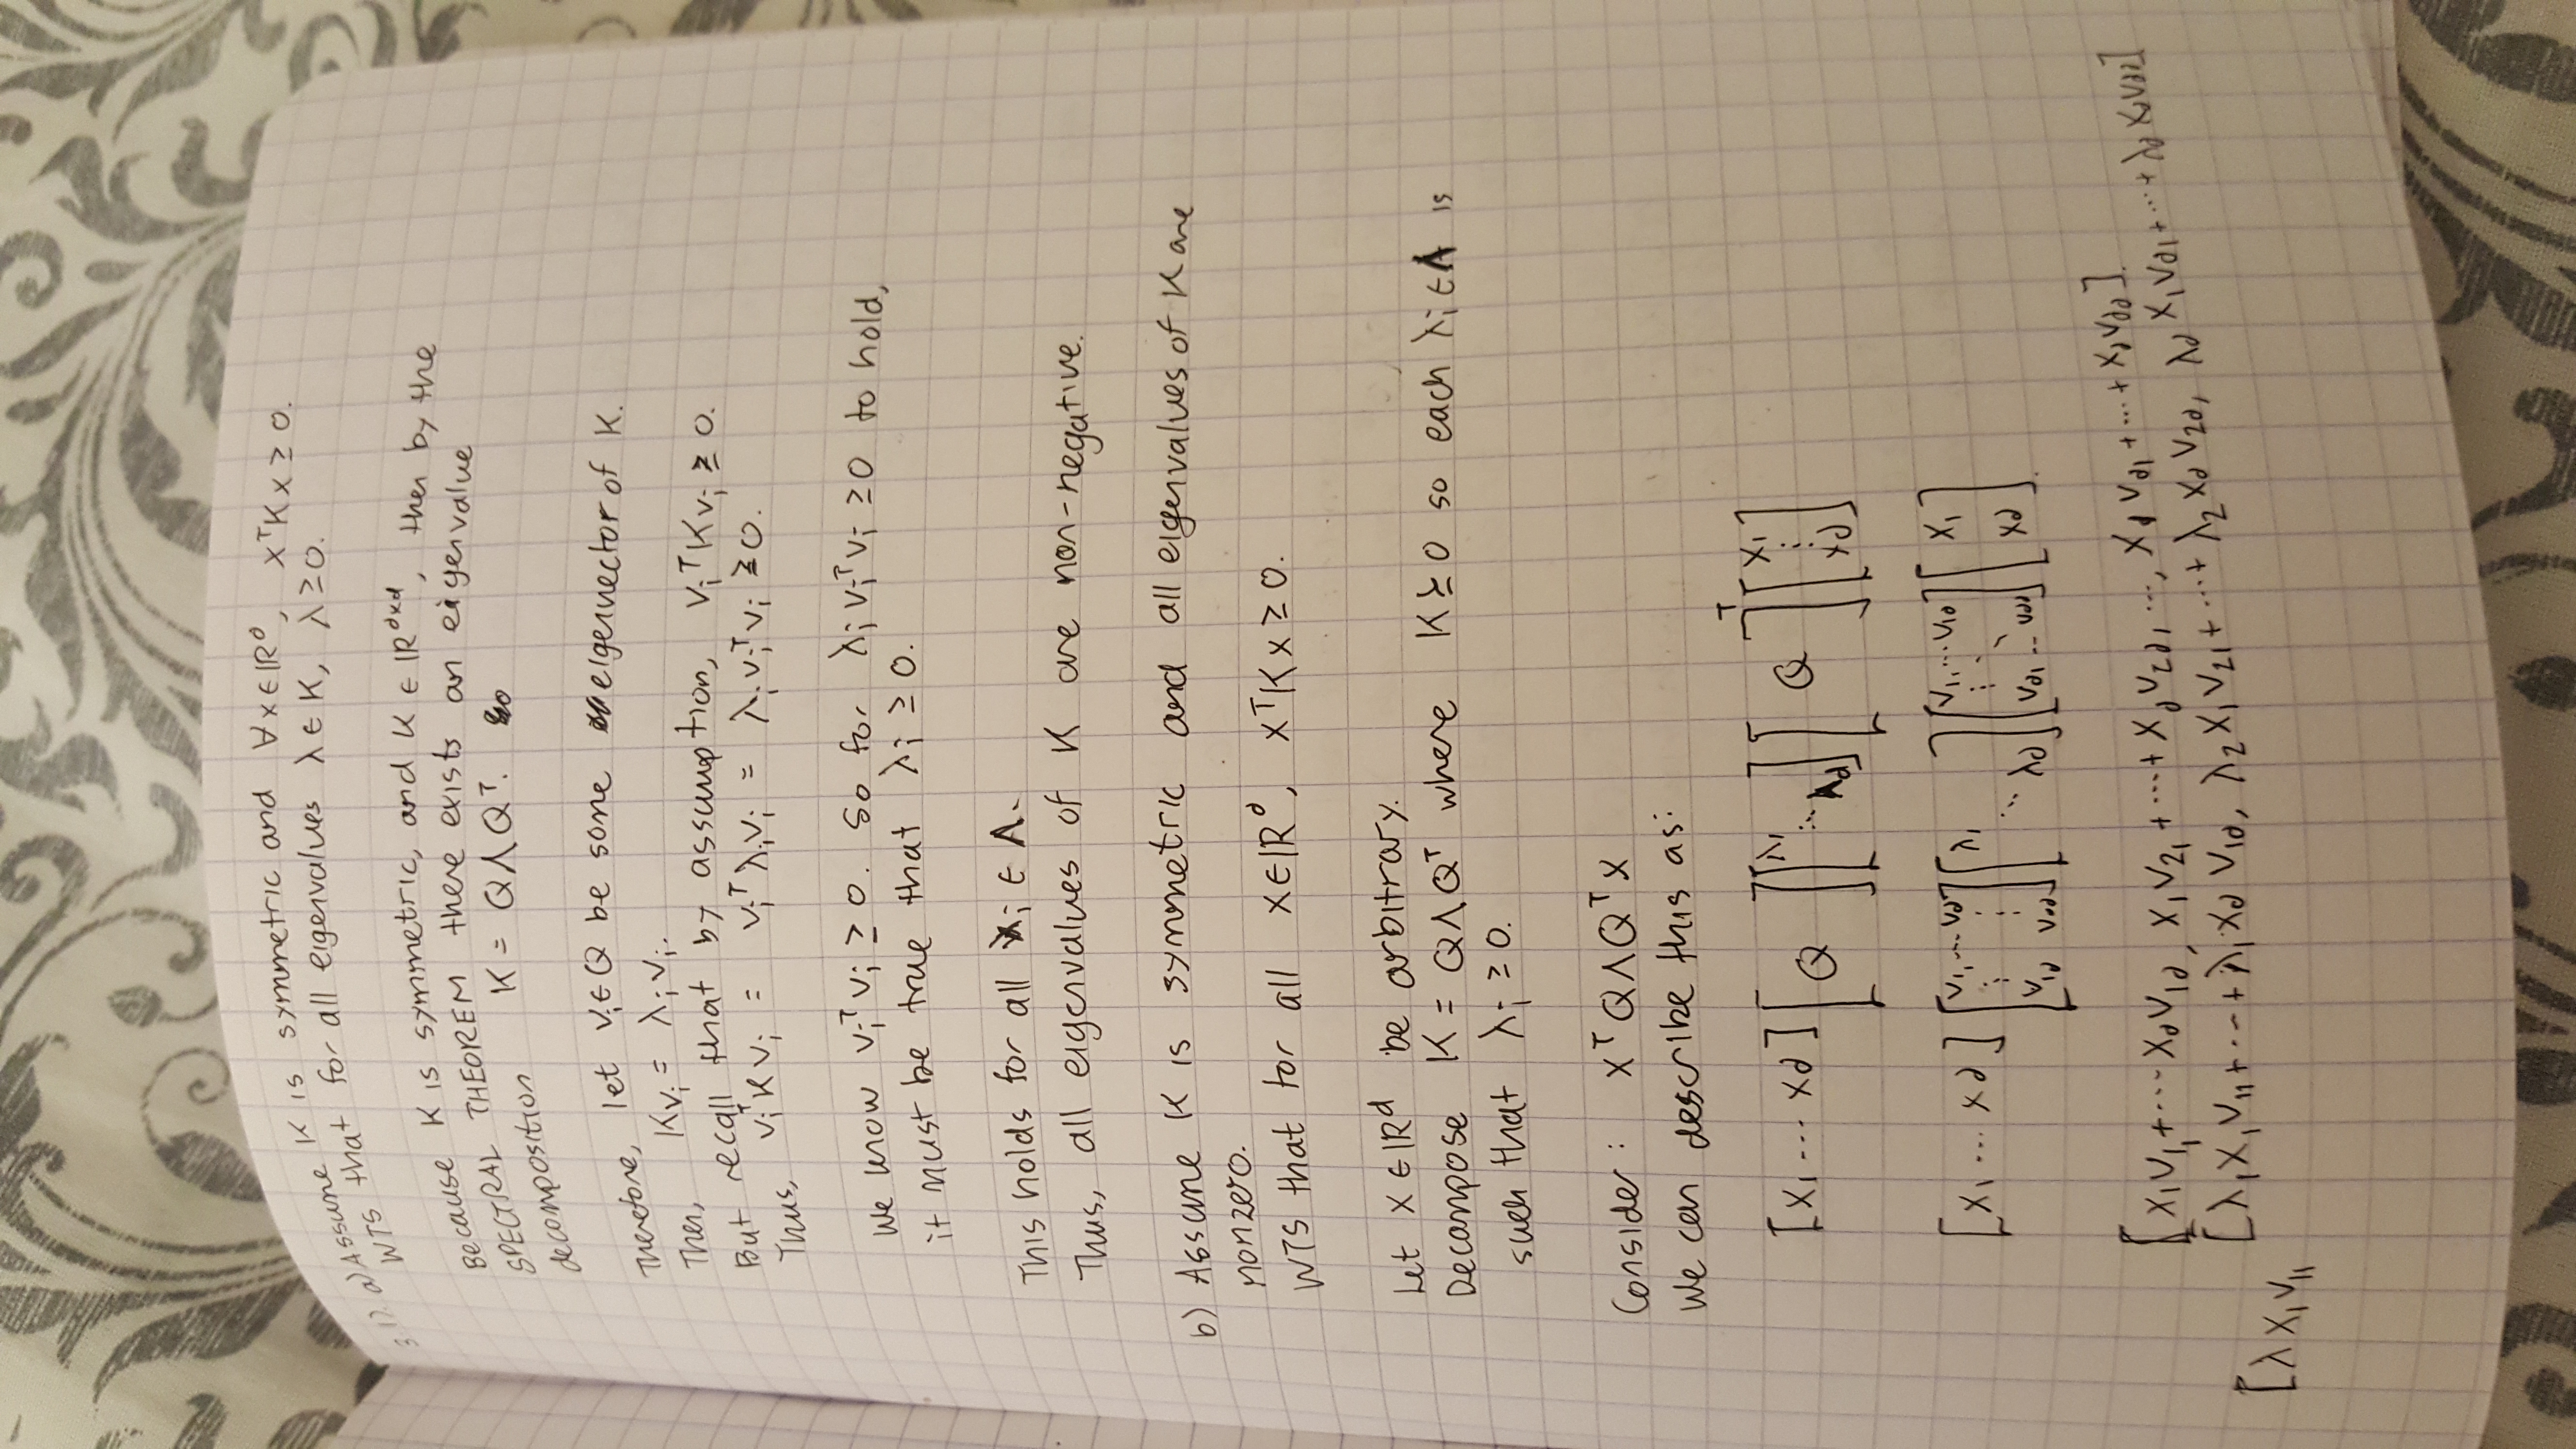 3.1). a) Assume K is symmetric and ∀x∈ℝᵈ, xᵀKx ≥ 0.
WTS that for all eigenvalues λ ∈ K, λ ≥ 0.
Because K is symmetric, and K ∈ ℝᵈˣᵈ, then by the
SPECTRAL THEOREM there exists an eigenvalue
decomposition K = QΛQᵀ.
Therefore, let vᵢ ∈ Q be some eigenvector of K.
Then, Kvᵢ = λᵢvᵢ.
But recall that by assumption, vᵢᵀKvᵢ ≥ 0.
Thus, vᵢᵀKvᵢ = vᵢᵀλᵢvᵢ = λᵢvᵢᵀvᵢ ≥ 0.
We know vᵢᵀvᵢ ≥ 0. So for λᵢvᵢᵀvᵢ ≥ 0 to hold,
it must be true that λᵢ ≥ 0.
This holds for all λᵢ ∈ Λ.
Thus, all eigenvalues of K are non-negative.
b) Assume K is symmetric and all eigenvalues of K are
nonzero.
WTS that for all x∈ℝᵈ, xᵀKx ≥ 0.
Let x ∈ ℝᵈ be arbitrary.
Decompose K = QΛQᵀ where K ⪰ 0 so each λᵢ ∈ Λ is
such that λᵢ ≥ 0.
Consider: xᵀQΛQᵀx
We can describe this as:
[x₁ ... x_d] [Q] [λ₁ ⋱ λ_d] [Q]ᵀ [x₁ ⋮ x_d]
[x₁ ... x_d] [v₁₁ ... v_d₁ ⋮ ⋮ v₁d v_dd] [λ₁ ⋱ λ_d] [v₁₁ ... v₁d ⋮ ⋱ v_d₁ ... v_dd] [x₁ x_d]
[x₁v₁₁ + ... x_d v₁d, x₁v₂₁ + ... + x_d v₂d, ..., x₁v_d₁ + ... + x_d v_dd]
[λ₁x₁v₁₁ + ... + λ₁x_d v₁d, λ₂x₁v₂₁ + ... + λ₂x_d v₂d, λ_d x₁v_d₁ + ... + λ_d x_d v_dd]
[λx₁v₁₁